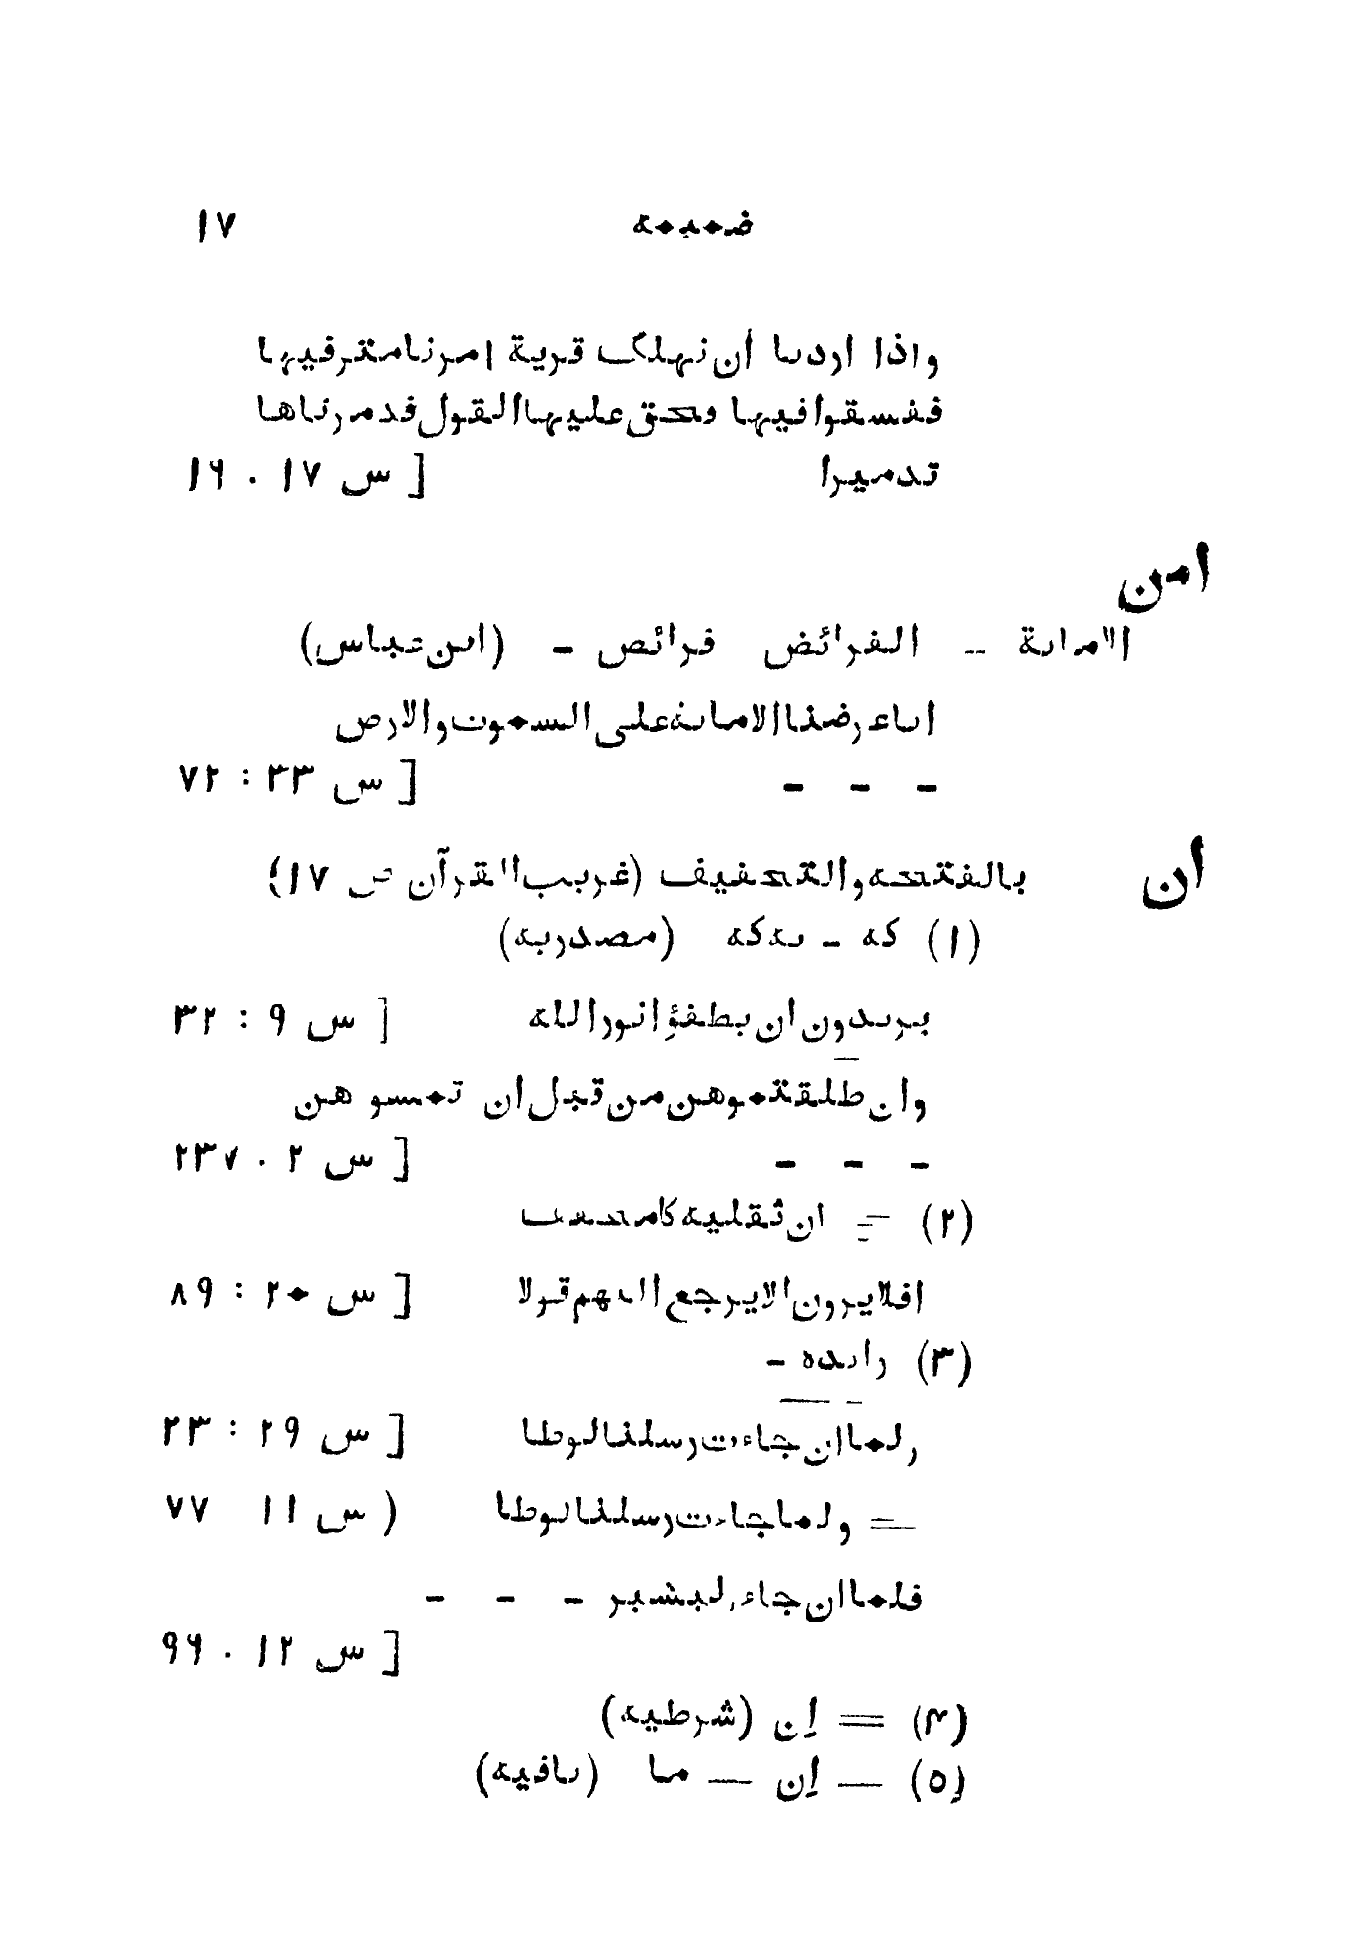 ضمیمه ۱۷
واذا اردنا أن نهلك قرية امرنا مترفيها
ففسقوا فيها فحق عليها القول فدمرناها
تدميرا [ س ۱۷ . ۱٦
امن
الامانة ــ الفرائض فرائض ــ (ابن عباس)
انا عرضنا الامانة على السموت والارض
ــ ــ ــ [ س ۳۳ : ۷۲
ان بالفتحه والتخفيف (غريب القرآن ص ۱۷)
(۱) که ــ یه که (مصدریه)
يريدون ان يطفؤا نور الله [ س ۹ : ۳۲
وان طلقتموهن من قبل ان تمسوهن
ــ ــ ــ [ س ۲ . ۲۳۷
(۲) = ان ثقلیه کا مخفف
افلا يرون الا يرجع اليهم قولا [ س ۲۰ : ۸۹
(۳) زایده ــ
ولما ان جاءت رسلنا لوطا [ س ۲۹ : ۳۳
= ولما جاءت رسلنا لوطا ( س ۱۱ ۷۷
فلما ان جاء البشير ــ ــ ــ
[ س ۱۲ . ۹٦
(۴) = اِن (شرطیه)
(۵) ــ اِن ــ ما (نافیه)